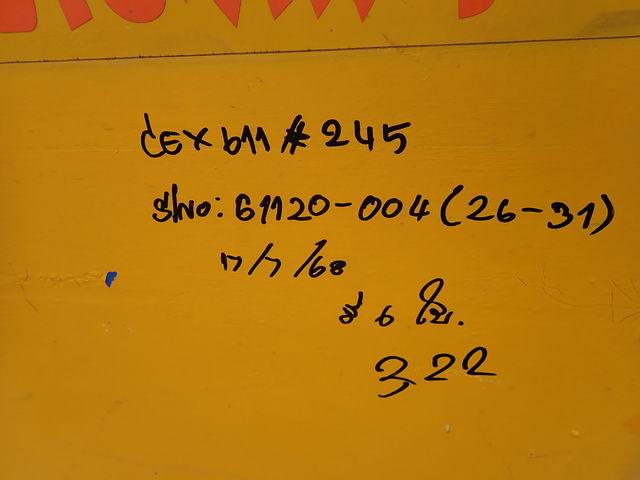 CEX b11 # 245
S/No: 61120-004 (26-31)
17/7/68
6 ใบ.
322